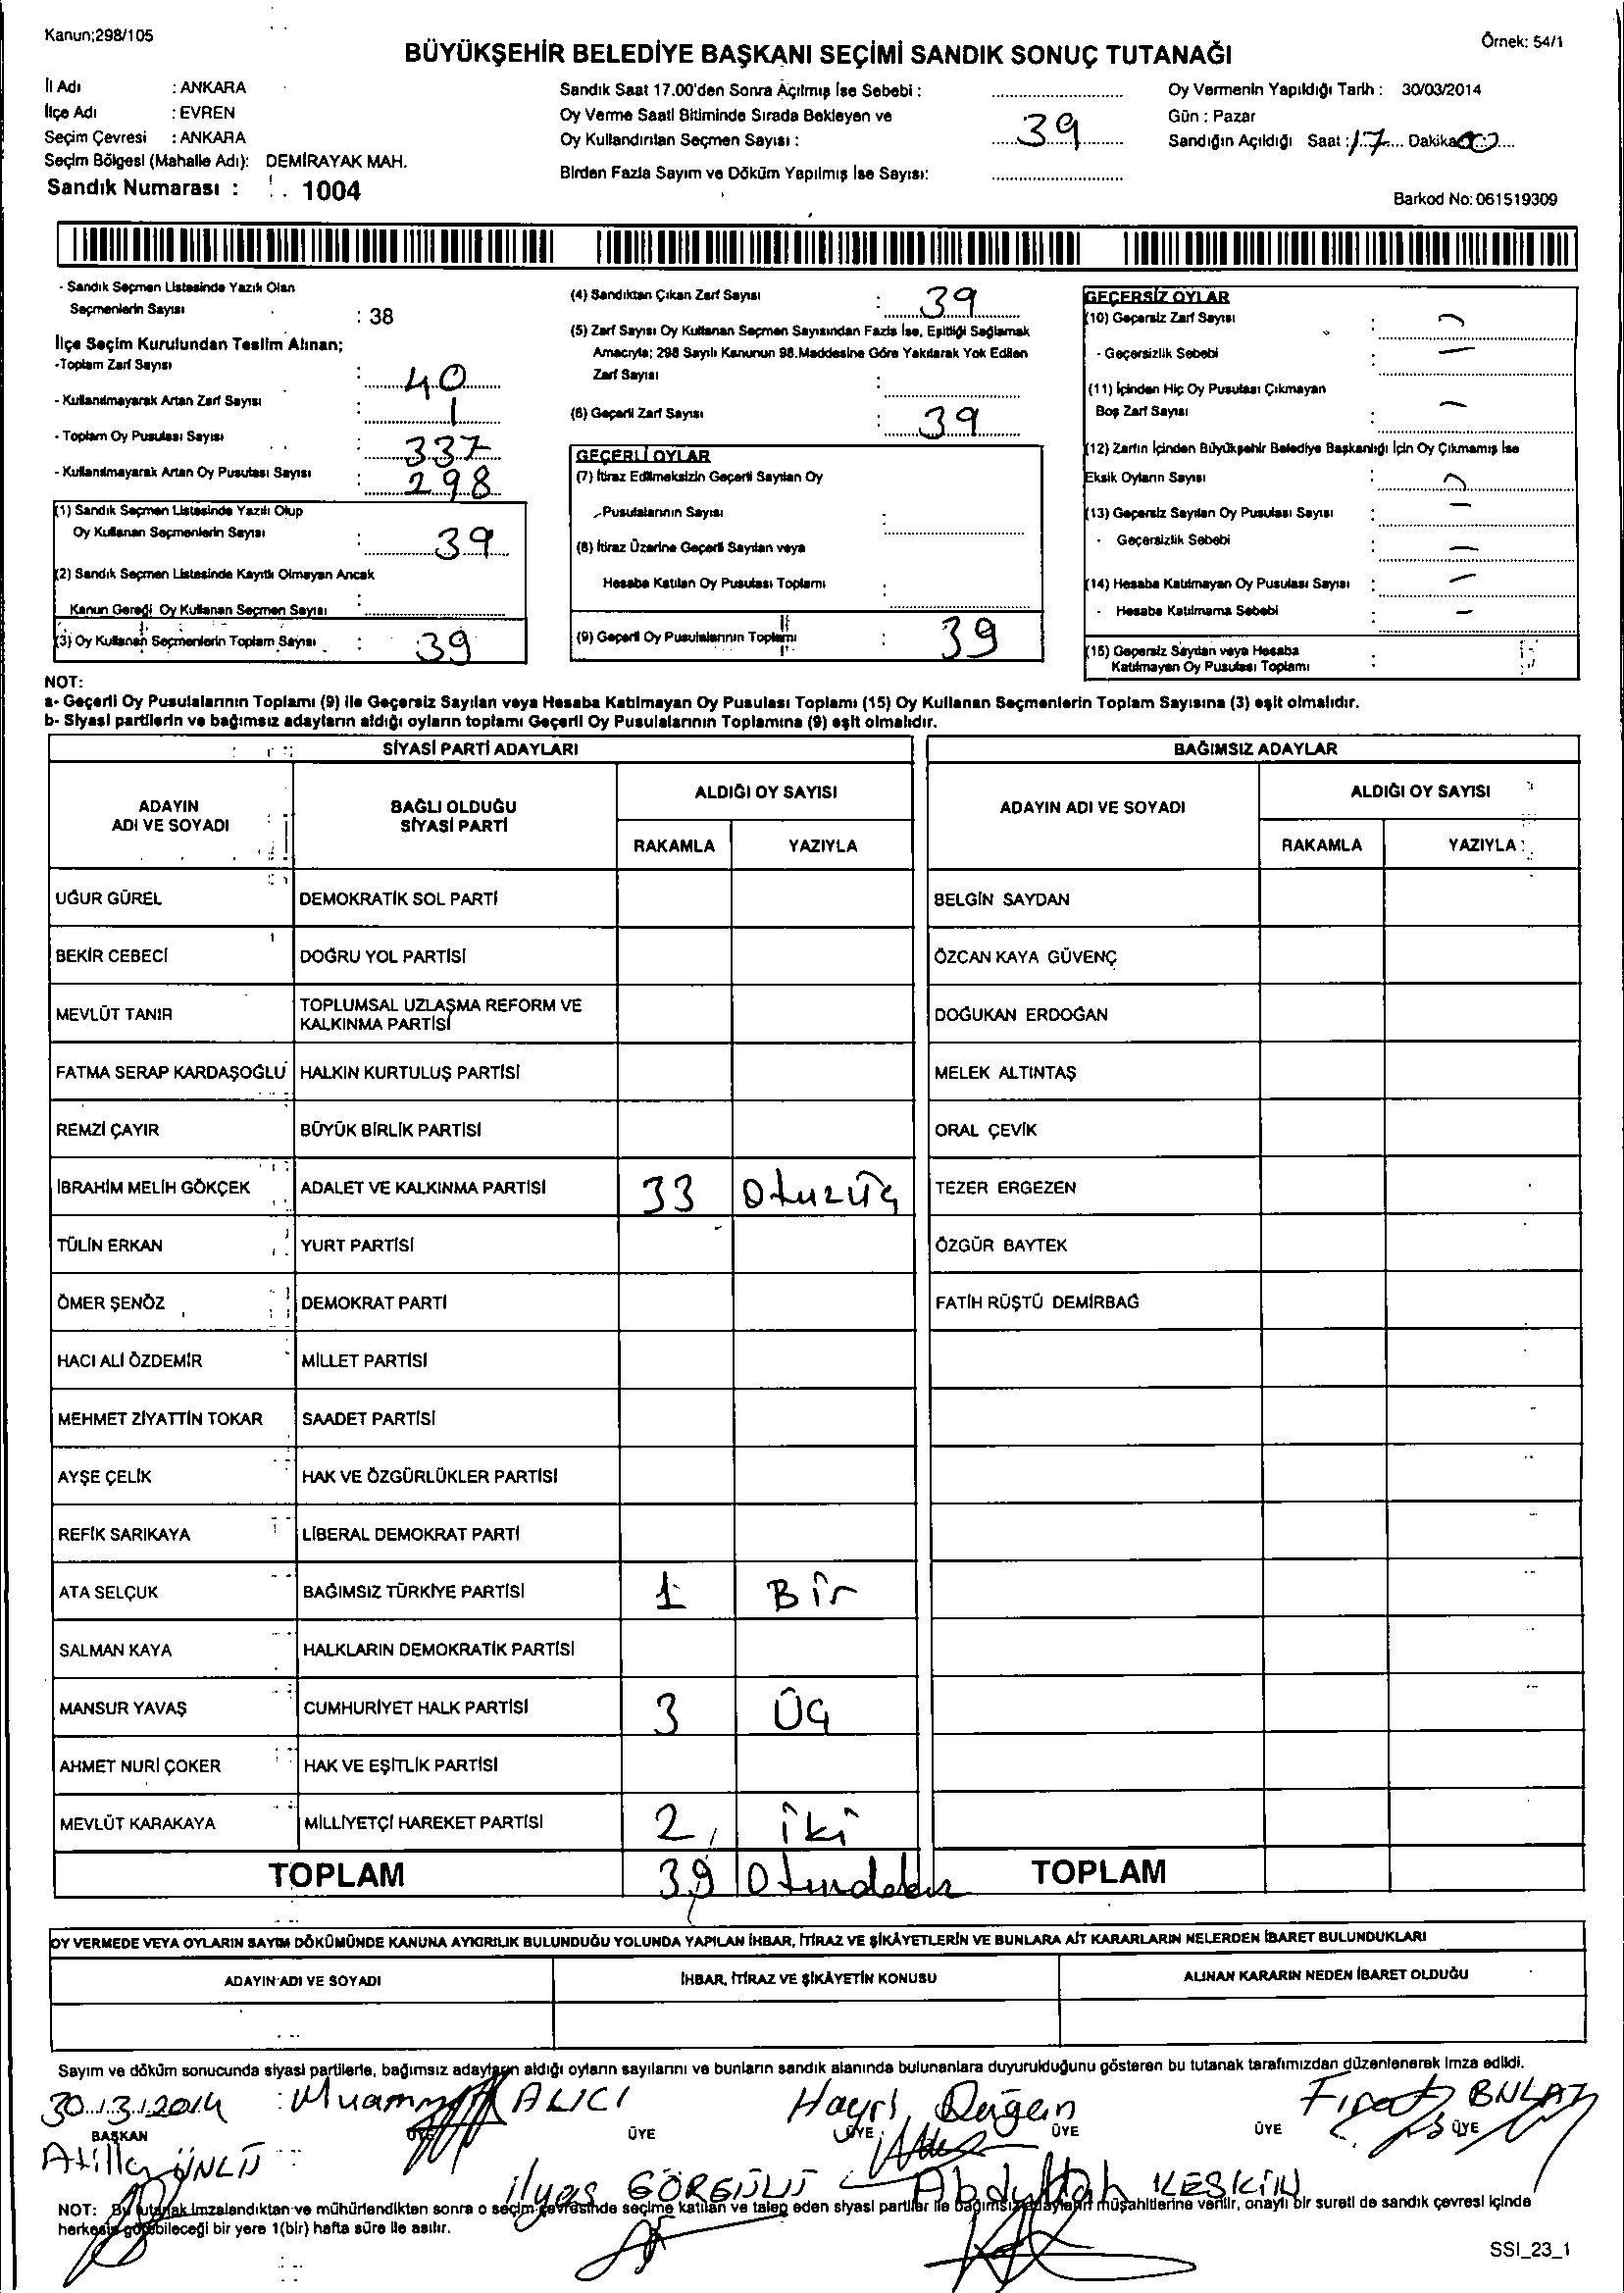 Kanun;298/105
Örnek: 54/1
BÜYÜKŞEHİR BELEDİYE BAŞKANI SEÇİMİ SANDIK SONUÇ TUTANAĞI
İl Adı : ANKARA
İlçe Adı : EVREN
Seçim Çevresi : ANKARA
Seçim Bölgesi (Mahalle Adı): DEMİRAYAK MAH.
Sandık Numarası : 1004
Sandık Saat 17.00'den Sonra Açılmış İse Sebebi :
Oy Verme Saati Bitiminde Sırada Bekleyen ve
Oy Kullandırılan Seçmen Sayısı : 39
Birden Fazla Sayım ve Döküm Yapılmış İse Sayısı:
Oy Vermenin Yapıldığı Tarih : 30/03/2014
Gün : Pazar
Sandığın Açıldığı Saat : 17 Dakika 00
Barkod No: 061519309
- Sandık Seçmen Listesinde Yazılı Olan
Seçmenlerin Sayısı : 38
İlçe Seçim Kurulundan Teslim Alınan;
-Toplam Zarf Sayısı : 40
- Kullanılmayarak Artan Zarf Sayısı : 1
- Toplam Oy Pusulası Sayısı : 337
- Kullanılmayarak Artan Oy Pusulası Sayısı : 298
(1) Sandık Seçmen Listesinde Yazılı Olup
Oy Kullanan Seçmenlerin Sayısı : 39
(2) Sandık Seçmen Listesinde Kayıtlı Olmayan Ancak
Kanun Gereği Oy Kullanan Seçmen Sayısı :
(3) Oy Kullanan Seçmenlerin Toplam Sayısı : 39
(4) Sandıktan Çıkan Zarf Sayısı : 39
(5) Zarf Sayısı Oy Kullanan Seçmen Sayısından Fazla İse, Eşitliği Sağlamak
Amacıyla; 298 Sayılı Kanunun 98.Maddesine Göre Yakılarak Yok Edilen
Zarf Sayısı :
(6) Geçerli Zarf Sayısı : 39
GEÇERLİ OYLAR
(7) İtiraz Edilmeksizin Geçerli Sayılan Oy
Pusulalarının Sayısı :
(8) İtiraz Üzerine Geçerli Sayılan veya
Hesaba Katılan Oy Pusulası Toplamı :
(9) Geçerli Oy Pusulalarının Toplamı : 39
GEÇERSİZ OYLAR
(10) Geçersiz Zarf Sayısı : -
- Geçersizlik Sebebi : -
(11) İçinden Hiç Oy Pusulası Çıkmayan
Boş Zarf Sayısı : -
(12) Zarfın İçinden Büyükşehir Belediye Başkanlığı İçin Oy Çıkmamış İse
Eksik Oyların Sayısı : -
(13) Geçersiz Sayılan Oy Pusulası Sayısı : -
- Geçersizlik Sebebi : -
(14) Hesaba Katılmayan Oy Pusulası Sayısı : -
- Hesaba Katılmama Sebebi : -
(15) Geçersiz Sayılan veya Hesaba
Katılmayan Oy Pusulası Toplamı :
NOT:
a- Geçerli Oy Pusulalarının Toplamı (9) ile Geçersiz Sayılan veya Hesaba Katılmayan Oy Pusulası Toplamı (15) Oy Kullanan Seçmenlerin Toplam Sayısına (3) eşit olmalıdır.
b- Siyasi partilerin ve bağımsız adayların aldığı oyların toplamı Geçerli Oy Pusulalarının Toplamına (9) eşit olmalıdır.
SİYASİ PARTİ ADAYLARI
ADAYIN ADI VE SOYADI
BAĞLI OLDUĞU SİYASİ PARTİ
ALDIĞI OY SAYISI
RAKAMLA YAZIYLA
UĞUR GÜREL DEMOKRATİK SOL PARTİ
BEKİR CEBECİ DOĞRU YOL PARTİSİ
MEVLÜT TANIR TOPLUMSAL UZLAŞMA REFORM VE
KALKINMA PARTİSİ
FATMA SERAP KARDAŞOĞLU HALKIN KURTULUŞ PARTİSİ
REMZİ ÇAYIR BÜYÜK BİRLİK PARTİSİ
İBRAHİM MELİH GÖKÇEK ADALET VE KALKINMA PARTİSİ 33 Otuzüç
TÜLİN ERKAN YURT PARTİSİ
ÖMER ŞENÖZ DEMOKRAT PARTİ
HACI ALİ ÖZDEMİR MİLLET PARTİSİ
MEHMET ZİYATTİN TOKAR SAADET PARTİSİ
AYŞE ÇELİK HAK VE ÖZGÜRLÜKLER PARTİSİ
REFİK SARIKAYA LİBERAL DEMOKRAT PARTİ
ATA SELÇUK BAĞIMSIZ TÜRKİYE PARTİSİ 1 Bir
SALMAN KAYA HALKLARIN DEMOKRATİK PARTİSİ
MANSUR YAVAŞ CUMHURİYET HALK PARTİSİ 3 Üç
AHMET NURİ ÇOKER HAK VE EŞİTLİK PARTİSİ
MEVLÜT KARAKAYA MİLLİYETÇİ HAREKET PARTİSİ 2 iki
TOPLAM 39
BAĞIMSIZ ADAYLAR
ADAYIN ADI VE SOYADI
ALDIĞI OY SAYISI
RAKAMLA YAZIYLA
BELGİN SAYDAN
ÖZCAN KAYA GÜVENÇ
DOĞUKAN ERDOĞAN
MELEK ALTINTAŞ
ORAL ÇEVİK
TEZER ERGEZEN
ÖZGÜR BAYTEK
FATİH RÜŞTÜ DEMİRBAĞ
TOPLAM
OY VERMEDE VEYA OYLARIN SAYIM DÖKÜMÜNDE KANUNA AYKIRILIK BULUNDUĞU YOLUNDA YAPILAN İHBAR, İTİRAZ VE ŞİKÂYETLERİN VE BUNLARA AİT KARARLARIN NELERDEN İBARET BULUNDUKLARI
ADAYIN ADI VE SOYADI
İHBAR, İTİRAZ VE ŞİKÂYETİN KONUSU
ALINAN KARARIN NEDEN İBARET OLDUĞU
Sayım ve döküm sonucunda siyasi partilerle, bağımsız adayların aldığı oyların sayılarını ve bunların sandık alanında bulunanlara duyurulduğunu gösteren bu tutanak tarafımızdan düzenlenerek imza edildi.
30.3.2014 ALICI Hayri
BAŞKAN ÜYE ÜYE ÜYE ÜYE ÜYE ÜYE
Atilla ÜNLÜ
ilyas GÖRGÜLÜ Abdullah KESKİN
NOT: Bu tutanak imzalandıktan ve mühürlendikten sonra o seçim çevresinde seçime katılan ve talep eden siyasi partiler ile bağımsız adayların müşahitlerine verilir, onaylı bir sureti de sandık çevresi içinde
herkesin görebileceği bir yere 1(bir) hafta süre ile asılır.
SSI_23_1